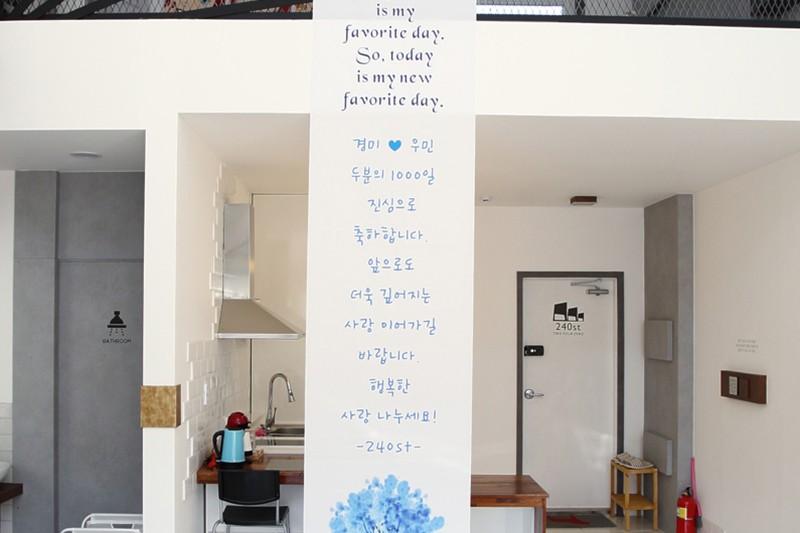 is my
favorite day.
So, today
is my new
favorite day.
경미 ♥ 우민
두분의 1000일
진심으로
축하합니다.
앞으로도
더욱 깊어지는
사랑 이어가길
바랍니다.
행복한
사랑 나누세요!
-240st-
BATHROOM
240st